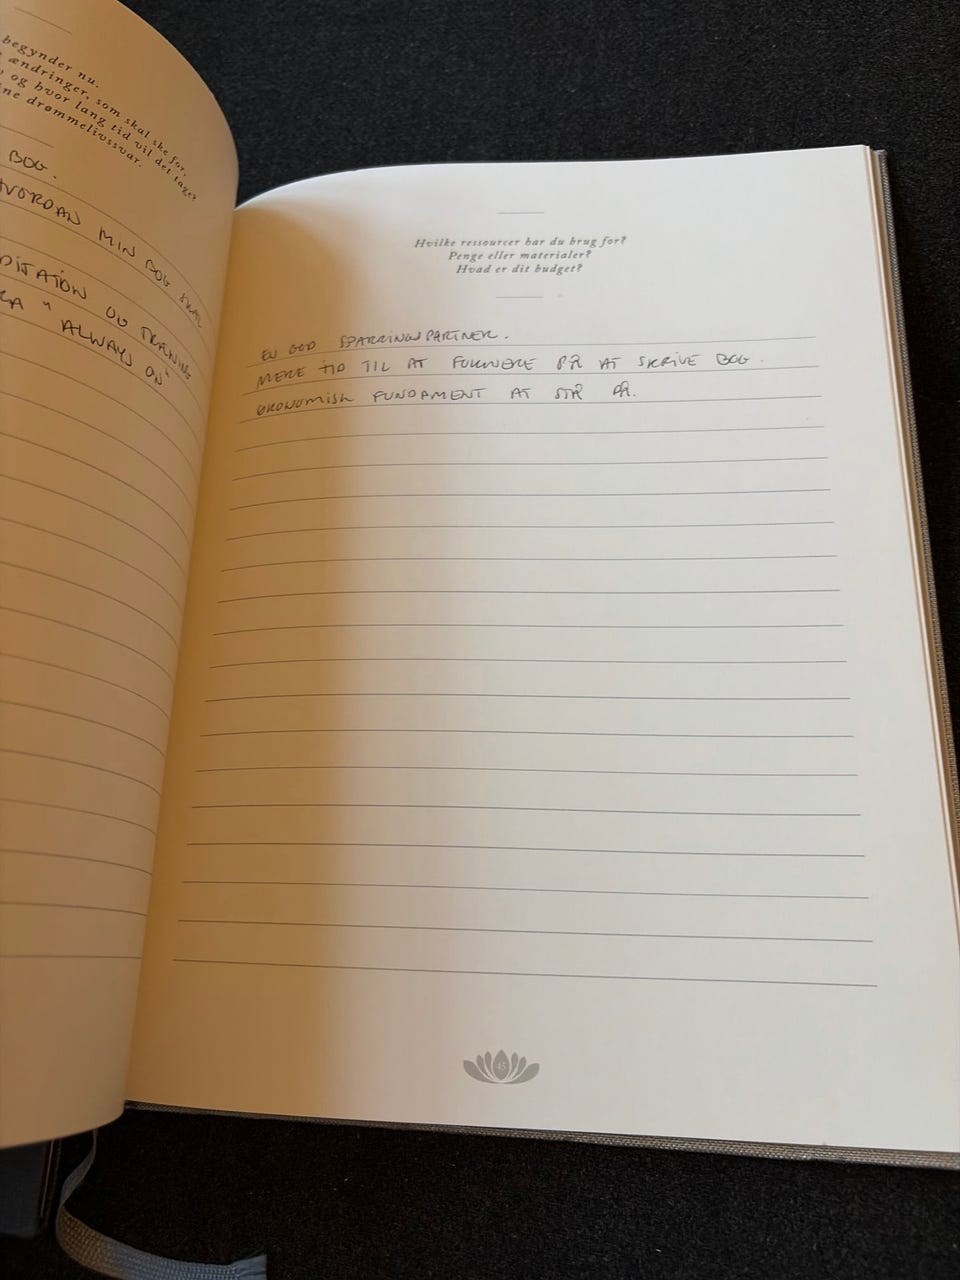 begynder nu.
ændringer, som skal ske for,
og hvor lang tid vil det tage?
ine drømmelivssvar.
BOG.
HVORDAN MIN BOG SKAL
DITATION OG TRÆNING
"ALWAYS ON"
Hvilke ressourcer har du brug for?
Penge eller materialer?
Hvad er dit budget?
EN GOD SPARRINGSPARTNER.
MERE TID TIL AT FOKUSERE PÅ AT SKRIVE BOG.
ØKONOMISK FUNDAMENT AT STÅ PÅ.
45